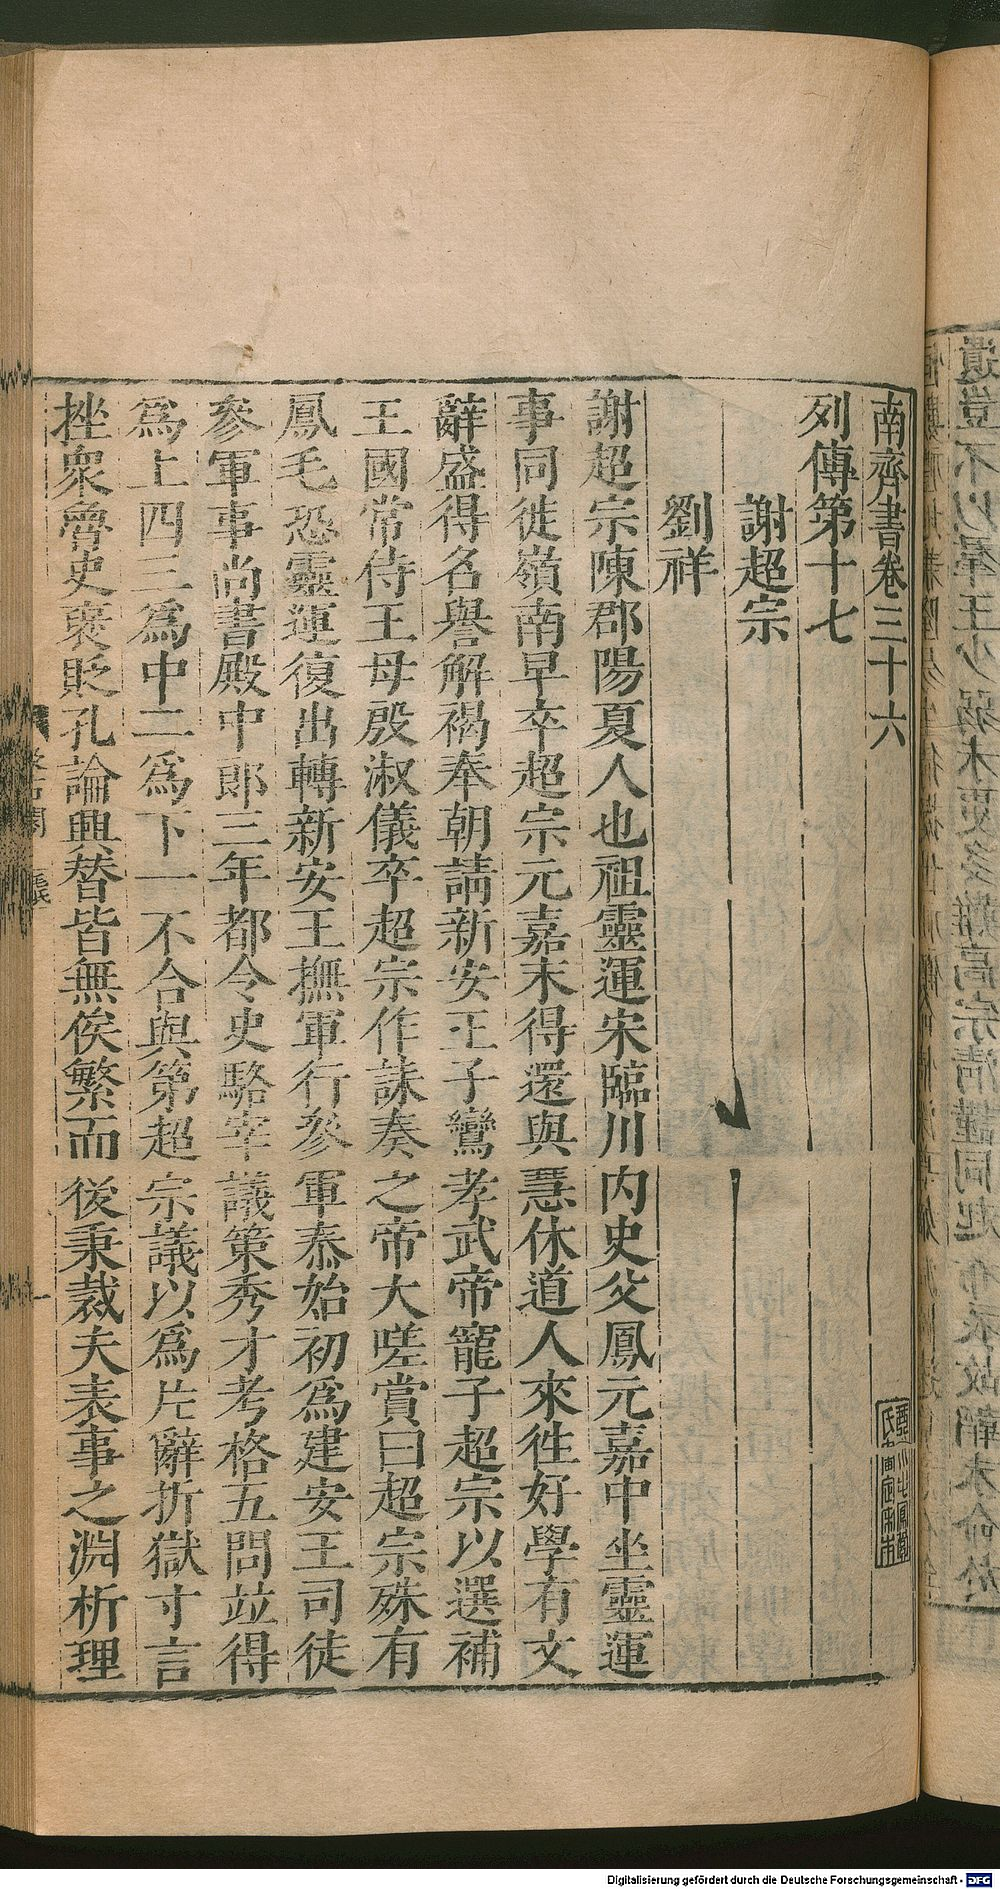 南齊書卷三十六
列傳第十七
謝超宗
劉祥
謝超宗陳郡陽夏人也祖靈運宋臨川内史父鳳元嘉中坐靈運
事同徙嶺南早卒超宗元嘉末得還與慧休道人來徃好學有文
辭盛得名譽解褐奉朝請新安王子鸞孝武帝寵子超宗以選補
王國常侍王母殷淑儀卒超宗作誄奏之帝大嗟賞曰超宗殊有
鳳毛恐靈運復出轉新安王撫軍行參軍泰始初爲建安王司徒
參軍事尚書殿中郎三年都令史駱宰議策秀才考格五問竝得
爲上四三爲中二爲下一不合與第超宗議以爲片辭折獄寸言
挫衆魯史褒貶孔論興替皆無俟繁而後秉裁夫表事之淵析理
Digitalisierung gefördert durch die Deutsche Forschungsgemeinschaft - DFG